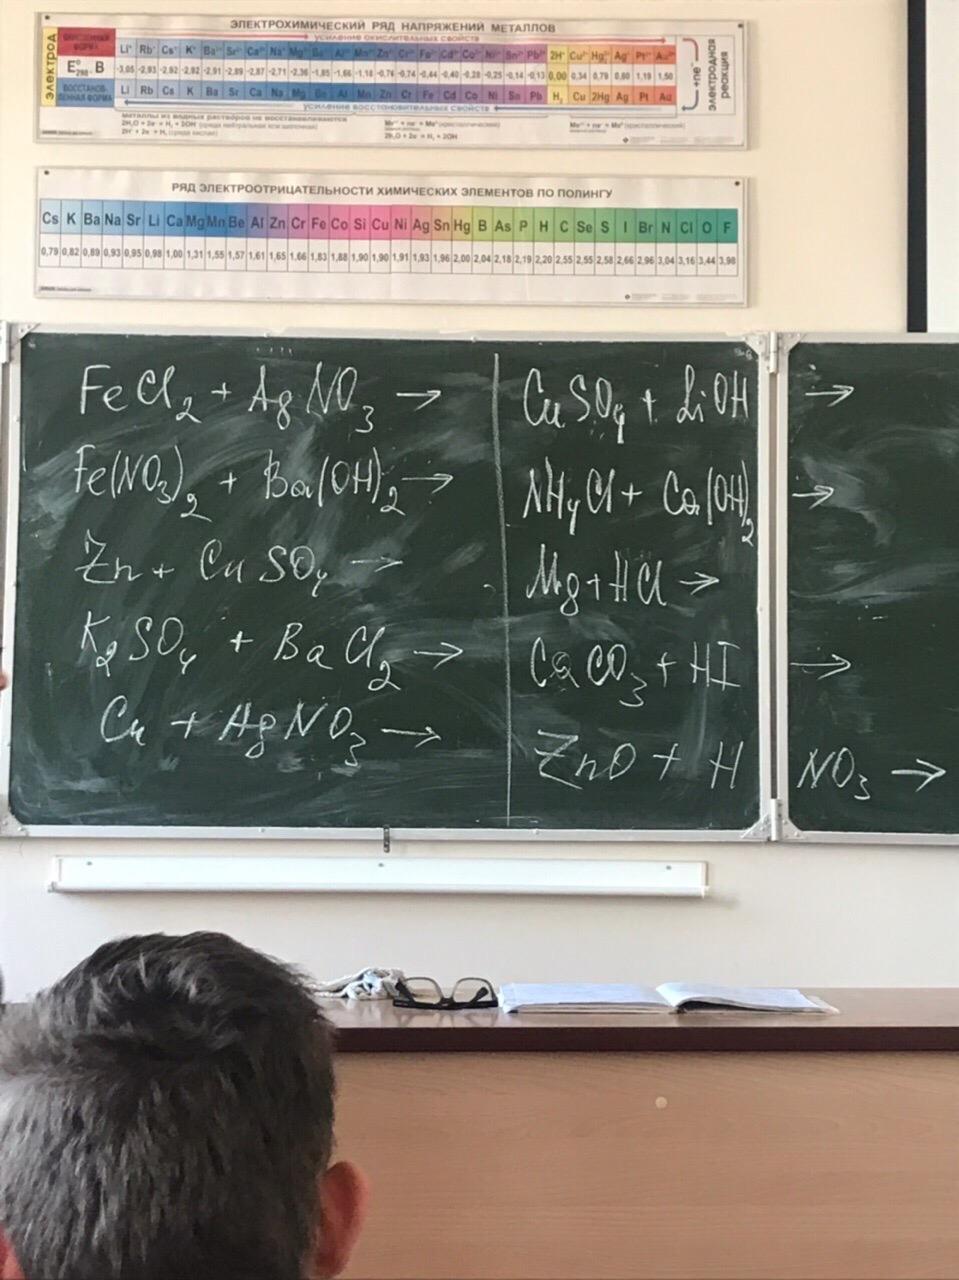 ЭЛЕКТРОХИМИЧЕСКИЙ РЯД НАПРЯЖЕНИЙ МЕТАЛЛОВ
усиление окислительных свойств
ЭЛЕКТРОД
ОКИСЛЕННАЯ ФОРМА Li⁺ Rb⁺ Cs⁺ K⁺ Ba²⁺ Sr²⁺ Ca²⁺ Na⁺ Mg²⁺ Be²⁺ Al³⁺ Mn²⁺ Zn²⁺ Cr³⁺ Fe²⁺ Cd²⁺ Co²⁺ Ni²⁺ Sn²⁺ Pb²⁺ 2H⁺ Cu²⁺ Hg₂²⁺ Ag⁺ Pt²⁺ Au³⁺
E°₂₉₈, В -3,05 -2,93 -2,92 -2,92 -2,91 -2,89 -2,87 -2,71 -2,36 -1,85 -1,66 -1,18 -0,76 -0,74 -0,44 -0,40 -0,28 -0,25 -0,14 -0,13 0,00 0,34 0,79 0,80 1,19 1,50
ВОССТАНОВЛЕННАЯ ФОРМА Li Rb Cs K Ba Sr Ca Na Mg Be Al Mn Zn Cr Fe Cd Co Ni Sn Pb H₂ Cu 2Hg Ag Pt Au
+ne⁻
ЭЛЕКТРОДНАЯ РЕАКЦИЯ
усиление восстановительных свойств
металлы из водных растворов не восстанавливаются
2H₂O + 2e⁻ = H₂ + 2OH⁻ (среда нейтральная или щелочная)
2H⁺ + 2e⁻ = H₂ (среда кислая)
Meⁿ⁺ + ne⁻ = Me⁰ (кристаллический)
2H₂O + 2e⁻ = H₂ + 2OH⁻
Meⁿ⁺ + ne⁻ = Me⁰ (кристаллический)
РЯД ЭЛЕКТРООТРИЦАТЕЛЬНОСТИ ХИМИЧЕСКИХ ЭЛЕМЕНТОВ ПО ПОЛИНГУ
Cs K Ba Na Sr Li Ca Mg Mn Be Al Zn Cr Fe Co Si Cu Ni Ag Sn Hg B As P H C Se S I Br N Cl O F
0,79 0,82 0,89 0,93 0,95 0,98 1,00 1,31 1,55 1,57 1,61 1,65 1,66 1,83 1,88 1,90 1,90 1,91 1,93 1,96 2,00 2,04 2,18 2,19 2,20 2,55 2,55 2,58 2,66 2,96 3,04 3,16 3,44 3,98
FeCl₂ + AgNO₃ →
Fe(NO₃)₂ + Ba(OH)₂ →
Zn + CuSO₄ →
K₂SO₄ + BaCl₂ →
Cu + AgNO₃ →
CuSO₄ + LiOH →
NH₄Cl + Ca(OH)₂ →
Mg + HCl →
CaCO₃ + HI →
ZnO + HNO₃ →